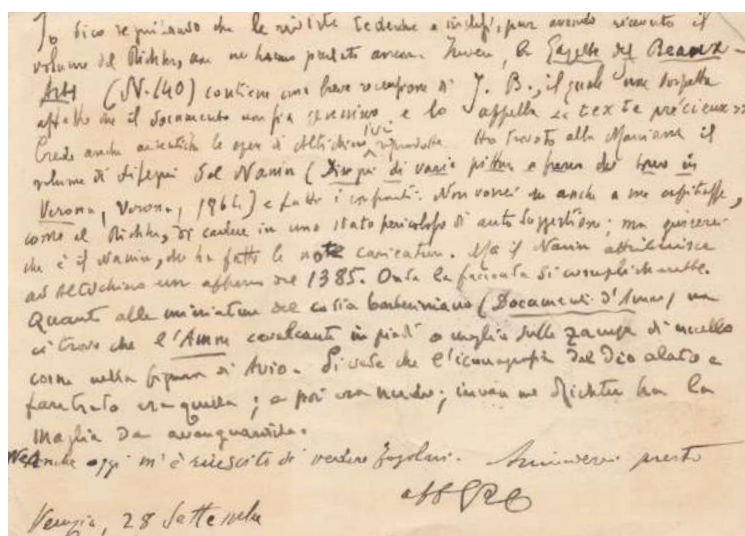 Io dico seguitando che le riviste tedesche e inglesi, pur avendo ricevuto il
volume del Richter, non ne hanno parlato ancora. Invece, la Gazette des Beaux-
Arts (N. 140) contiene una breve recensione di J. B., il quale non sospetta
affatto che il documento non sia genuino e lo appella « texte précieux »
Crede anche autentiche le opere di Altichiero ivi riprodotte. Ho trovato alla Marciana il
volume di disegni del Nanin (Disegni di varie pitture a fresco che sono in
Verona, Verona, 1864) e fatto i confronti. Non vorrei che anche a me capitasse,
come al Richter, di cadere in uno stato pericoloso di auto suggestione; ma
che è il Nanin, che ha fatto le note caricature. Ma il Nanin attribuisce
ad Altichiero un affresco del 1385. Onde la faccenda si complicherebbe.
Quanto alle miniature del codice barberiniano (Documenti d'Amore) non
ci trovo che l'Amore cavalcante in piedi o meglio sulle zampe di uccello
come nella figura di Avio. Si vede che l'iconografia del Dio alato e
faretrato era quella; e poi era nudo; invece nel Richter ha la
maglia da avanguardista.
Neanche oggi m'è riuscito di vedere Fogolari. Scrivimi presto
Venezia, 28 Settembre